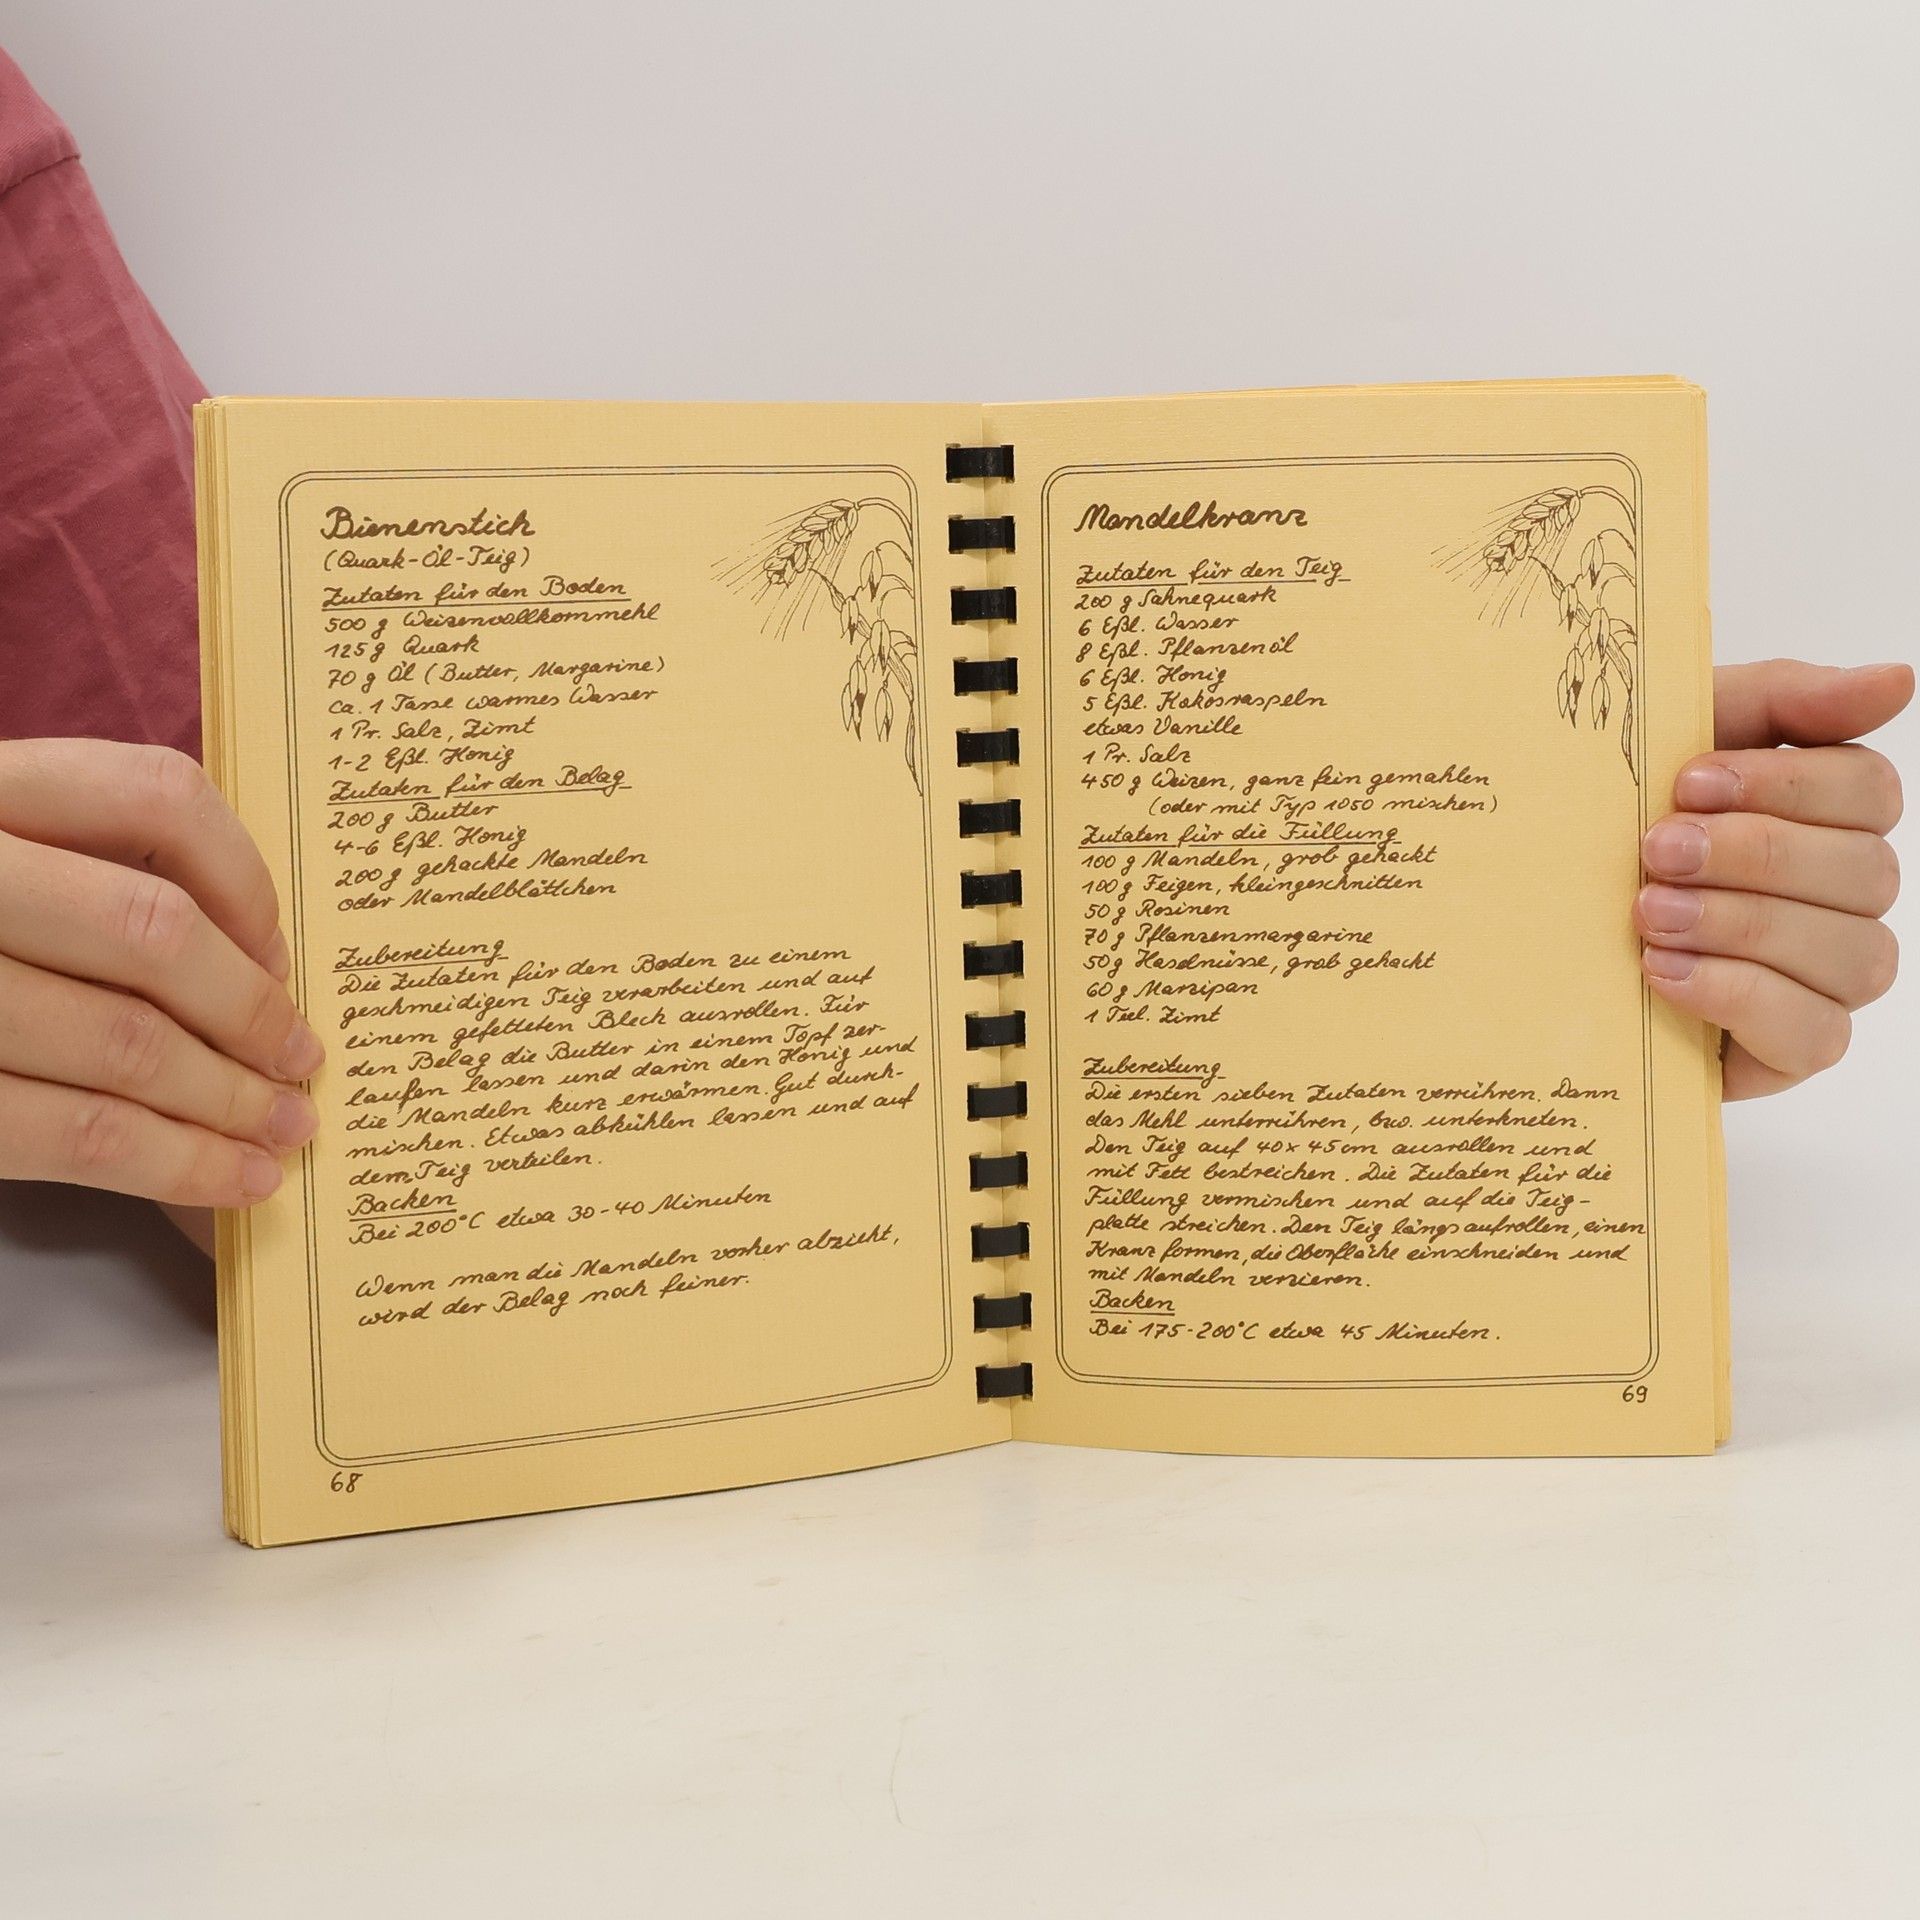 Bienenstich
(Quark-Öl-Teig)
Zutaten für den Boden
500 g Weizenvollkornmehl
125 g Quark
70 g Öl (Butter, Margarine)
ca. 1 Tasse warmes Wasser
1 Pr. Salz, Zimt
1-2 Eßl. Honig
Zutaten für den Belag
200 g Butter
4-6 Eßl. Honig
200 g gehackte Mandeln
oder Mandelblättchen
Zubereitung
Die Zutaten für den Boden zu einem
geschmeidigen Teig verarbeiten und auf
einem gefetteten Blech ausrollen. Für
den Belag die Butter in einem Topf zer-
laufen lassen und darin den Honig und
die Mandeln kurz erwärmen. Gut durch-
mischen. Etwas abkühlen lassen und auf
dem Teig verteilen.
Backen
Bei 200°C etwa 30-40 Minuten
Wenn man die Mandeln vorher abzieht,
wird der Belag noch feiner.
68
Mandelkranz
Zutaten für den Teig
200 g Sahnequark
6 Eßl. Wasser
8 Eßl. Pflanzenöl
6 Eßl. Honig
5 Eßl. Kokosraspeln
etwas Vanille
1 Pr. Salz
450 g Weizen, ganz fein gemahlen
(oder mit Typ 1050 mischen)
Zutaten für die Füllung
100 g Mandeln, grob gehackt
100 g Feigen, kleingeschnitten
50 g Rosinen
70 g Pflanzenmargarine
50 g Haselnüsse, grob gehackt
60 g Marzipan
1 Teel. Zimt
Zubereitung
Die ersten sieben Zutaten verrühren. Dann
das Mehl unterrühren, bzw. unterkneten.
Den Teig auf 40 x 45 cm ausrollen und
mit Fett bestreichen. Die Zutaten für die
Füllung vermischen und auf die Teig-
platte streichen. Den Teig längs aufrollen, einen
Kranz formen, die Oberfläche einschneiden und
mit Mandeln verzieren.
Backen
Bei 175-200°C etwa 45 Minuten.
69